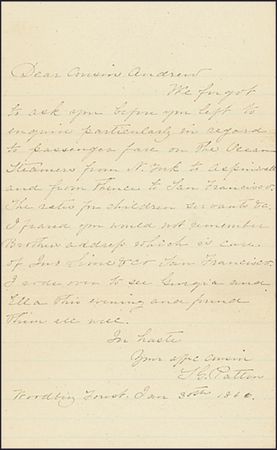 Dear Cousin Andrew
We forgot
to ask you before you left to
enquire particularly in regard
to passenger fare on the Ocean
Steamers from N. York to Aspinwall
and from thence to San Francisco.
The rates for children servants &c.
I feared you would not remember
Brothers address which is care
of Jno & Co San Francisco.
I rode over to see and
Ella this evening and found
them all well.
In haste
Your affc cousin
S G. Patton
Woodbury Forest. Jan 30th 1866.